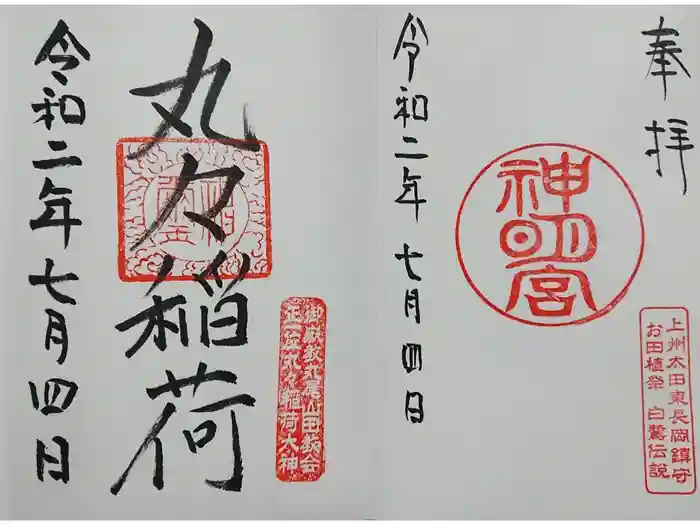 奉拝
神明宮
上州太田東長岡鎮守
お田植祭 白鷺伝説
令和二年七月四日
丸々稲荷
正一位丸々稲荷大神
令和二年七月四日